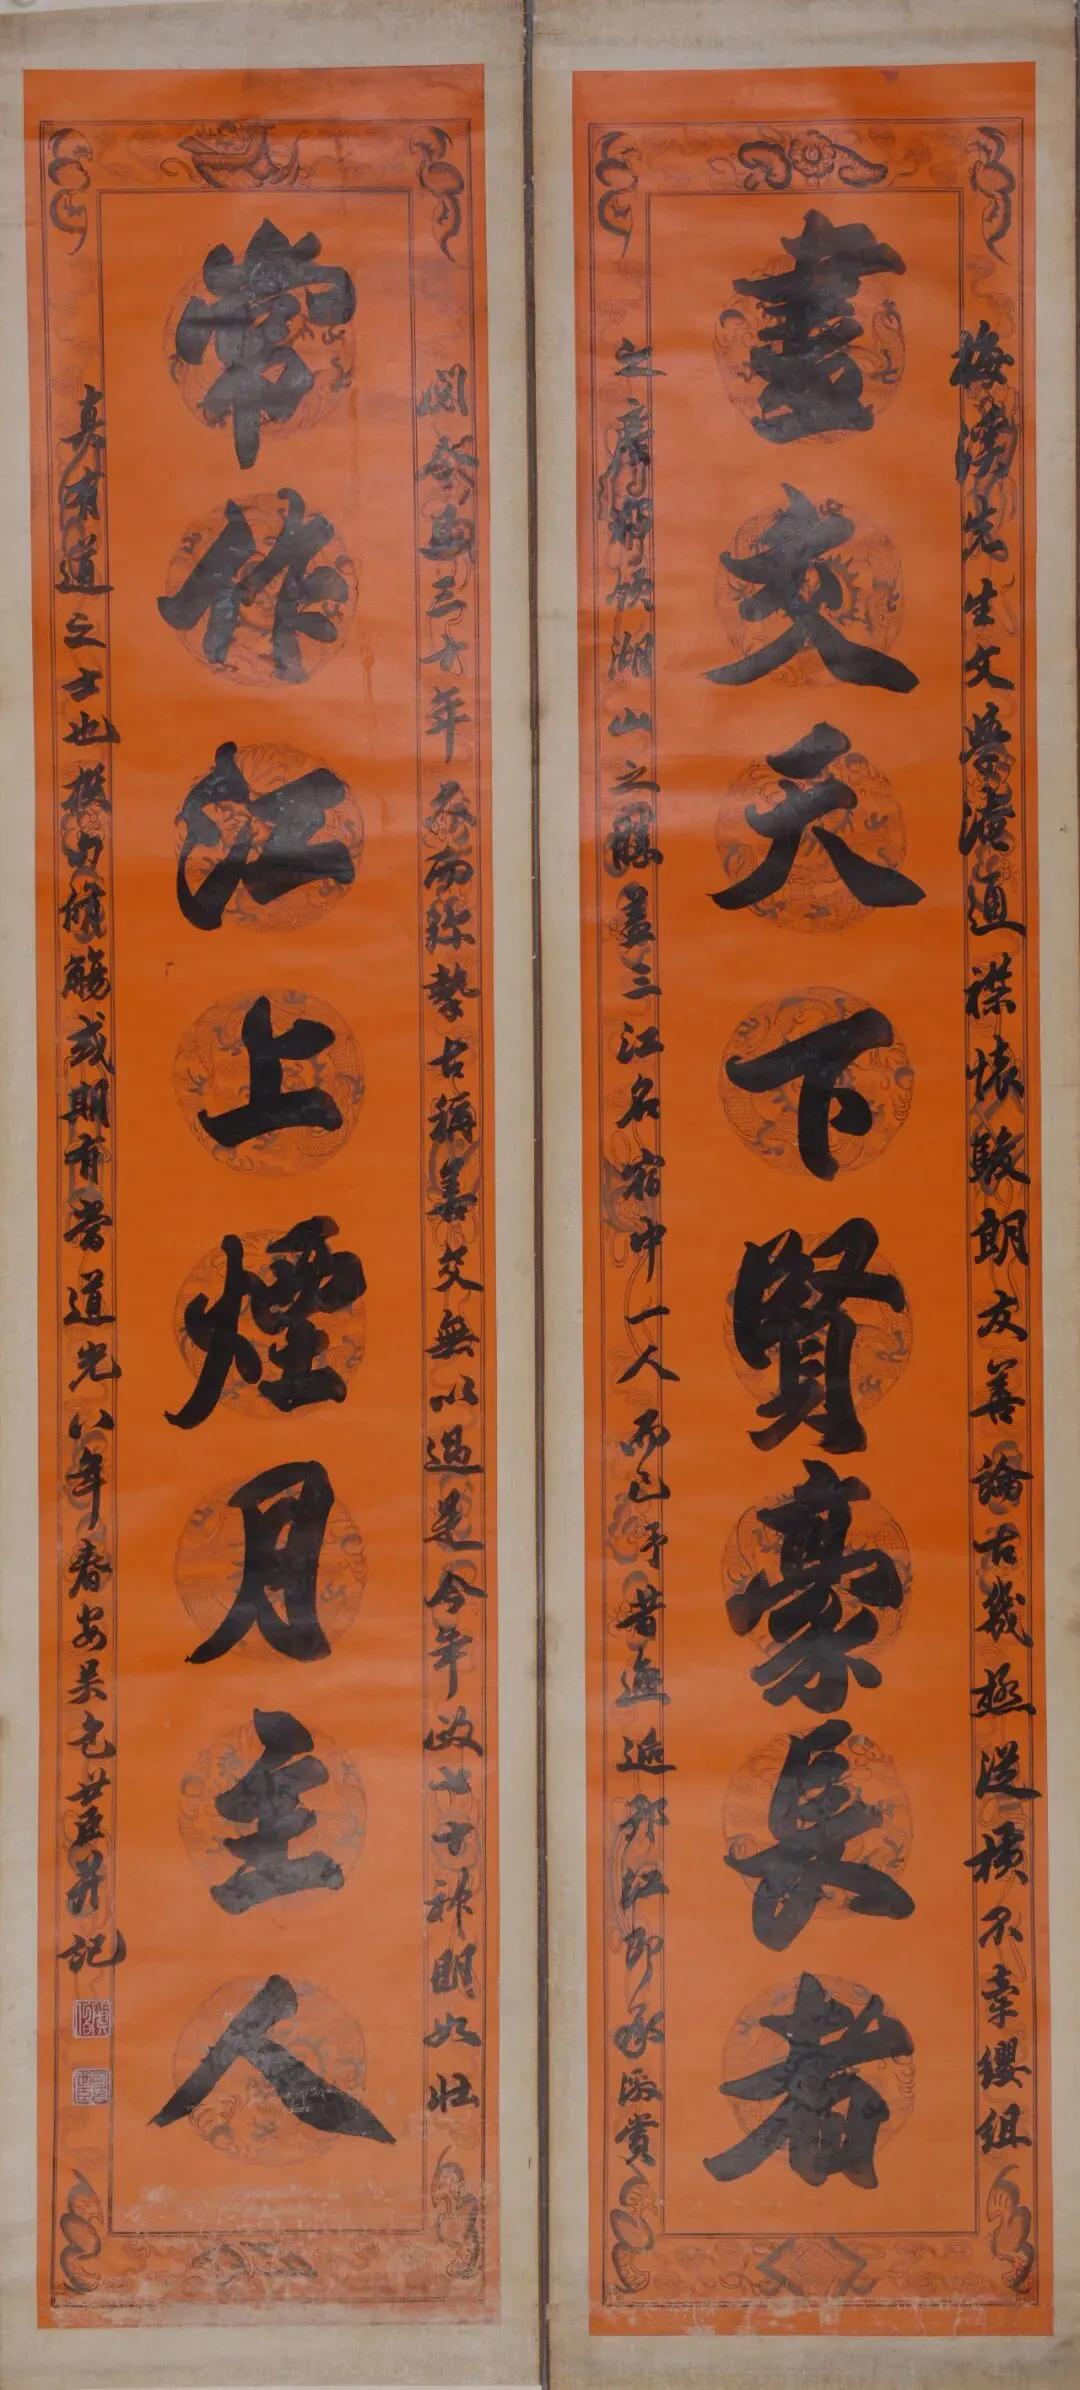 盡交天下賢豪長者
梅溪先生文學淹通襟懷駿朗友善論古幾極從橫不牽纓組
之湖山之勝蓋三江名宿中一人而已予昔邂逅邗江即承激賞
常作江上煙月主人
閱今垂三十年久而彌摯古稱善交無以過是今年政七十神明如壯
真有道之士也撰句侑觴或期有當道光八年春安吳包世臣并記